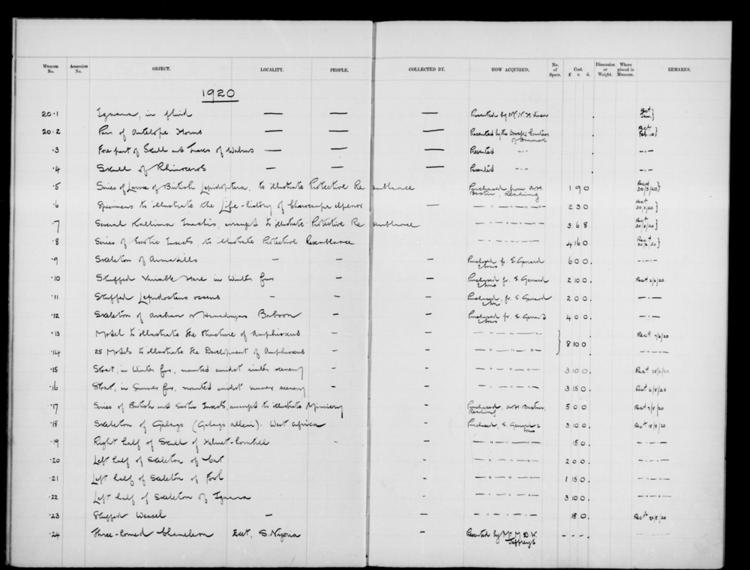 Museum No. Accession No. OBJECT. LOCALITY. PEOPLE. COLLECTED BY. HOW ACQUIRED. No. of Specs. Cost. £ s d. Dimension or Weight. Where placed in Museum. REMARKS.
1920
20·1 Iguana, in fluid — — — Presented by
20·2 Pair of Antelope Horns — — — Presented by the
·3 Fore part of Skull and Tusks of Walrus — — — Presented —··—
·4 Skull of Rhinoceros — — — Presented —··—
·5 Series of Larvae of British Lepidoptera, to illustrate Protective Resemblance Purchased from Reading 1 9 0
·6 Specimens to illustrate the Life-history of Choerocampa elpenor — 2 3 0
·7 Several Kallima Inachis, arranged to illustrate Protective Resemblance 3 6 8
·8 Series of Exotic Insects to illustrate Protective Resemblance 4 16 0
·9 Skeleton of Armadillo — — — Purchased fr. E. Gerrard & Sons 6 0 0
·10 Stuffed Variable Hare in Winter fur — — Purchased fr. E. Gerrard & Sons 2 10 0
·11 Stuffed Lepidosteus osseus — — Purchased fr. E. Gerrard & Sons 2 0 0
·12 Skeleton of Arabian or Hamadryas Baboon — — Purchased fr. E. Gerrard & Sons 4 0 0
·13 Model to illustrate the Structure of Amphioxus —
·14 25 Models to illustrate the Development of Amphioxus — 8 10 0
·15 Stoat, in Winter fur, mounted amidst winter scenery — 3 10 0
·16 Stoat, in Summer fur, mounted amidst summer scenery — 3 15 0
·17 Series of British and Exotic Insects, arranged to illustrate Mimicry — Purchased Reading 5 0 0
·18 Skeleton of Galago (Galago alleni). West Africa — Purchased E. Gerrard & Sons 3 10 0
·19 Right half of Skull of Helmet-hornbill — — 15 0
·20 Left half of Skeleton of — 2 0 0
·21 Left half of Skeleton of Fowl — 1 15 0
·22 Left half of Skeleton of Iguana — 3 10 0
·23 Stuffed Weasel — — 18 0
·24 Three-horned Chameleon S. Nigeria — Presented by Mr. M. D. W. Jeffreys